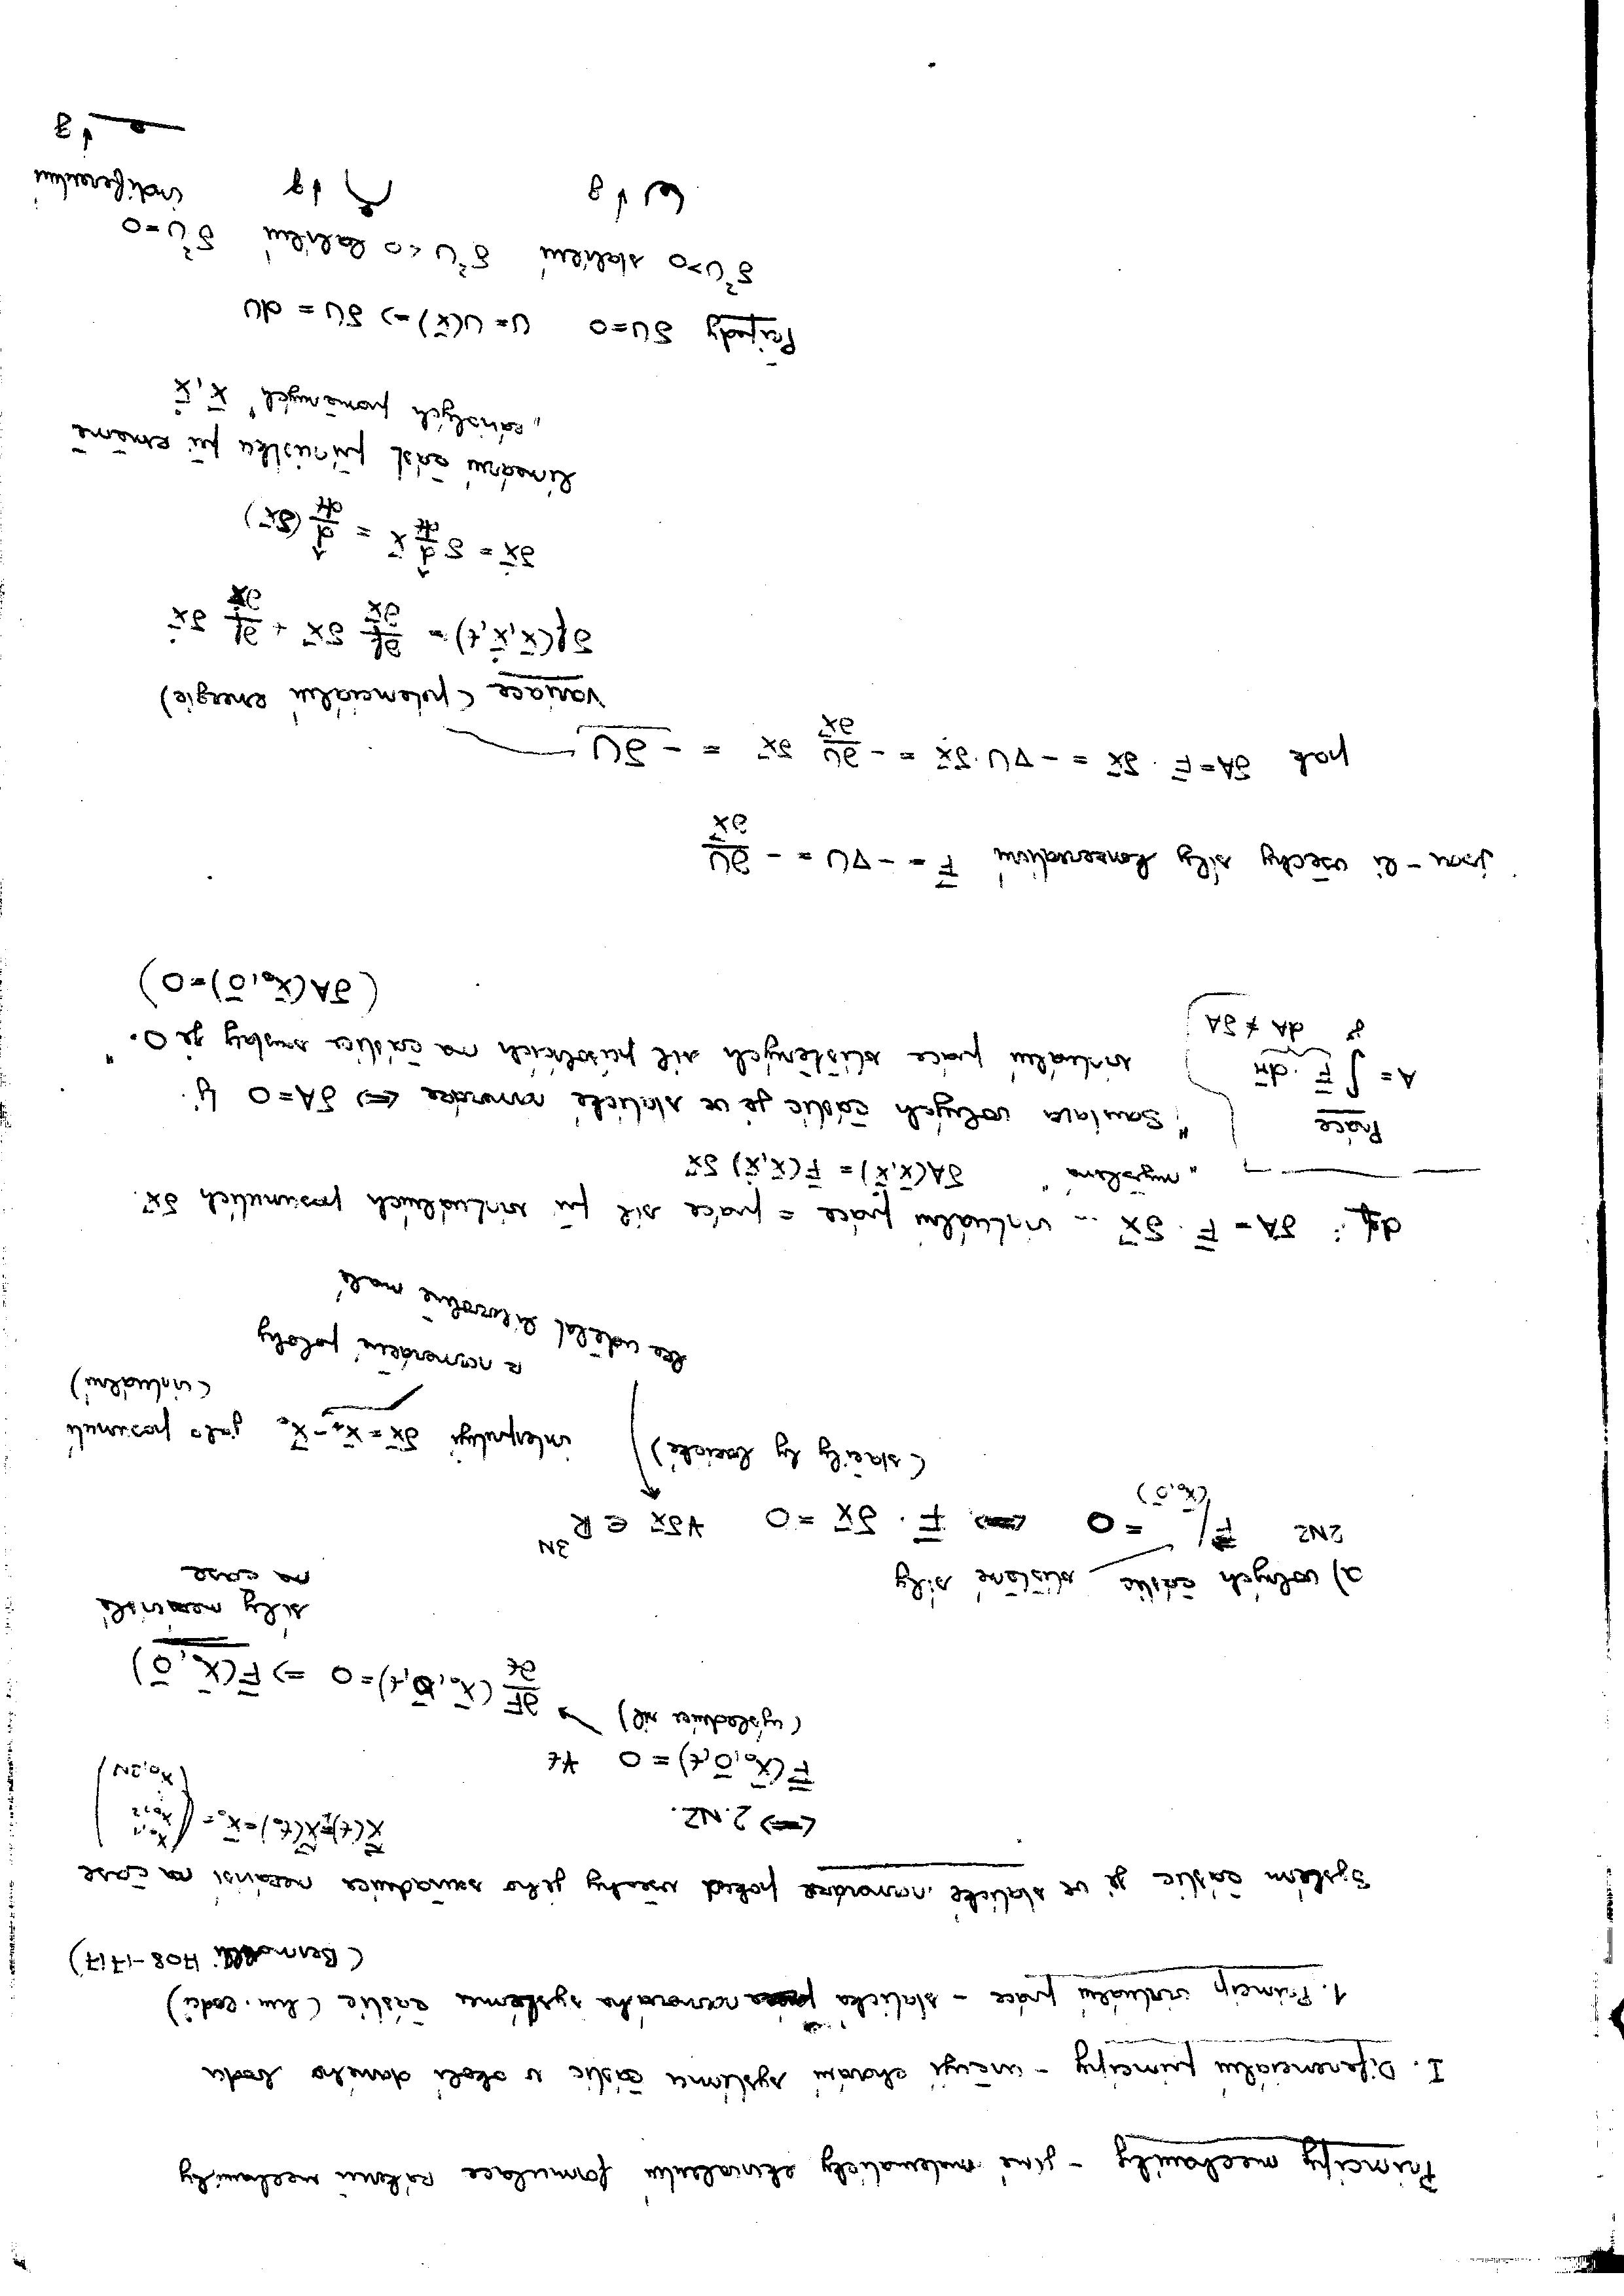 Principy mechaniky – jiné matematicky ekvivalentní formulace zákonů mechaniky
I. Diferenciální principy – určují chování systému částic v okolí daného bodu
1. Princip virtuální práce – statická rovnováha systému částic (hm. bodů)
(Bernoulli 1708-1717)
Systém částic je ve statické rovnováze pokud všechny jeho souřadnice nezávisí na čase
⟺ 2.NZ. x̄(t)=x̄(t₀)=x̄₀= (x₀,₁ x₀,₂ ⋮ x₀,₃N)
F̄(x̄₀,0̄,t) = 0 ∀t
(výslednice sil) → ∂F̄/∂t (x̄₀,0̄,t)=0 ⇒ F̄(x̄₀,0̄)
síly nezávislé na čase
a) volných částic vtištěné síly
2NZ F̄/(x̄₀,0̄) = 0 ⟺ F̄ · δx̄ = 0 ∀δx̄ ∈ R³ᴺ
(stačily by bazické) interpretuji δx̄=x̄₁-x̄₀ jako posunutí (virtuální)
z rovnovážné polohy
lze udělat libovolně malé
def: δA = F̄ · δx̄ ... virtuální práce = práce sil při virtuálních posunutích δx̄
"myšlená" δA(x̄,ẋ̄) = F̄(x̄,ẋ̄) δx̄
Práce
A = ∫ F̄ · dr̄
γ dA ≠ δA
"Soustava volných částic je ve statické rovnováze ⟺ δA=0 tj.
virtuální práce vtištěných sil působících na částice soustavy je 0."
(δA(x̄₀,0̄)=0)
jsou-li všechny síly konzervativní F̄ = -∇U = - ∂U/∂x̄
pak δA = F̄ · δx̄ = -∇U·δx̄ = - ∂U/∂x̄ δx̄ = - δU
variace (potenciální energie)
δf(x̄,ẋ̄,t) = ∂f/∂x̄ δx̄ + ∂f/∂ẋ̄ δẋ̄
δẋ̄ = δ d/dt x̄ = d/dt (δx̄)
lineární část přírůstku při změně
"závislých proměnných" x̄, ẋ̄
Případy δU=0 U=U(x̄) ⇒ δU = dU
δ²U>0 stabilní δ²U<0 labilní δ²U=0
indiferentní
↓g ↓g ↓g